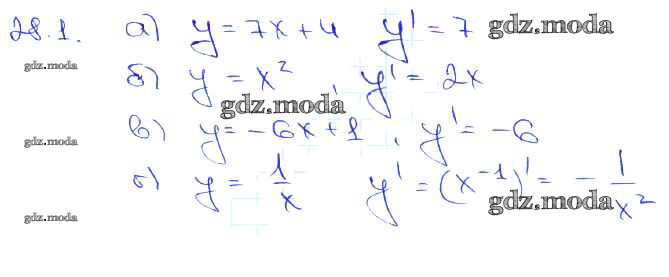 28.1. а) y = 7x + 4 y' = 7 gdz.moda
gdz.moda
б) y = x², y' = 2x
gdz.moda
в) y = -6x + 1, y' = -6
gdz.moda
г) y = 1/x y' = (x⁻¹)' = - 1/x²
gdz.moda
gdz.moda